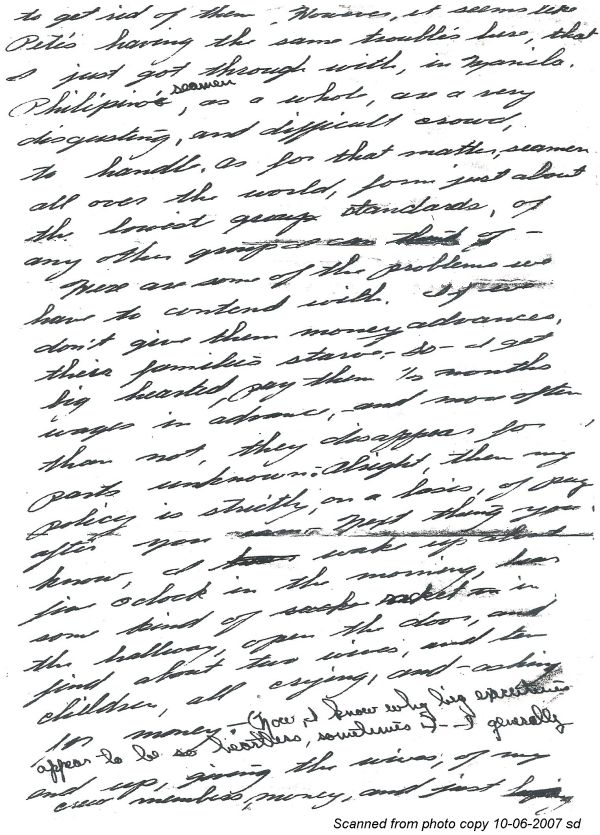 to get rid of them. However, it seems like
Pete's having the same troubles here, that
I just got through with, in Manila.
Philipino seamen, as a whole, are a very
disgusting, and difficult crowd,
to handle. as for that matter, seamen
all over the world, form just about
the lowest group standards, of
any other group
Here are some of the problems we
have to contend with. If we
don't give them money advances,
their families starve - so - I get
big hearted, pay them ½ months
wages in advance, - and more often
than not, they disappear for
parts unknown. Alright, then my
policy is strictly, on a basis, of pay
after you Next thing you
know, I wake up
five o'clock in the morning, hear
some kind of racket in
the hallway, open the door, and
find about two wives, and ten
children, all crying, and - asking
for money - (Now, I know why big executives
appear to be so heartless, sometimes I - I generally
end up, giving the wives, of my
crew members, money, and just
Scanned from photo copy 10-06-2007 sd